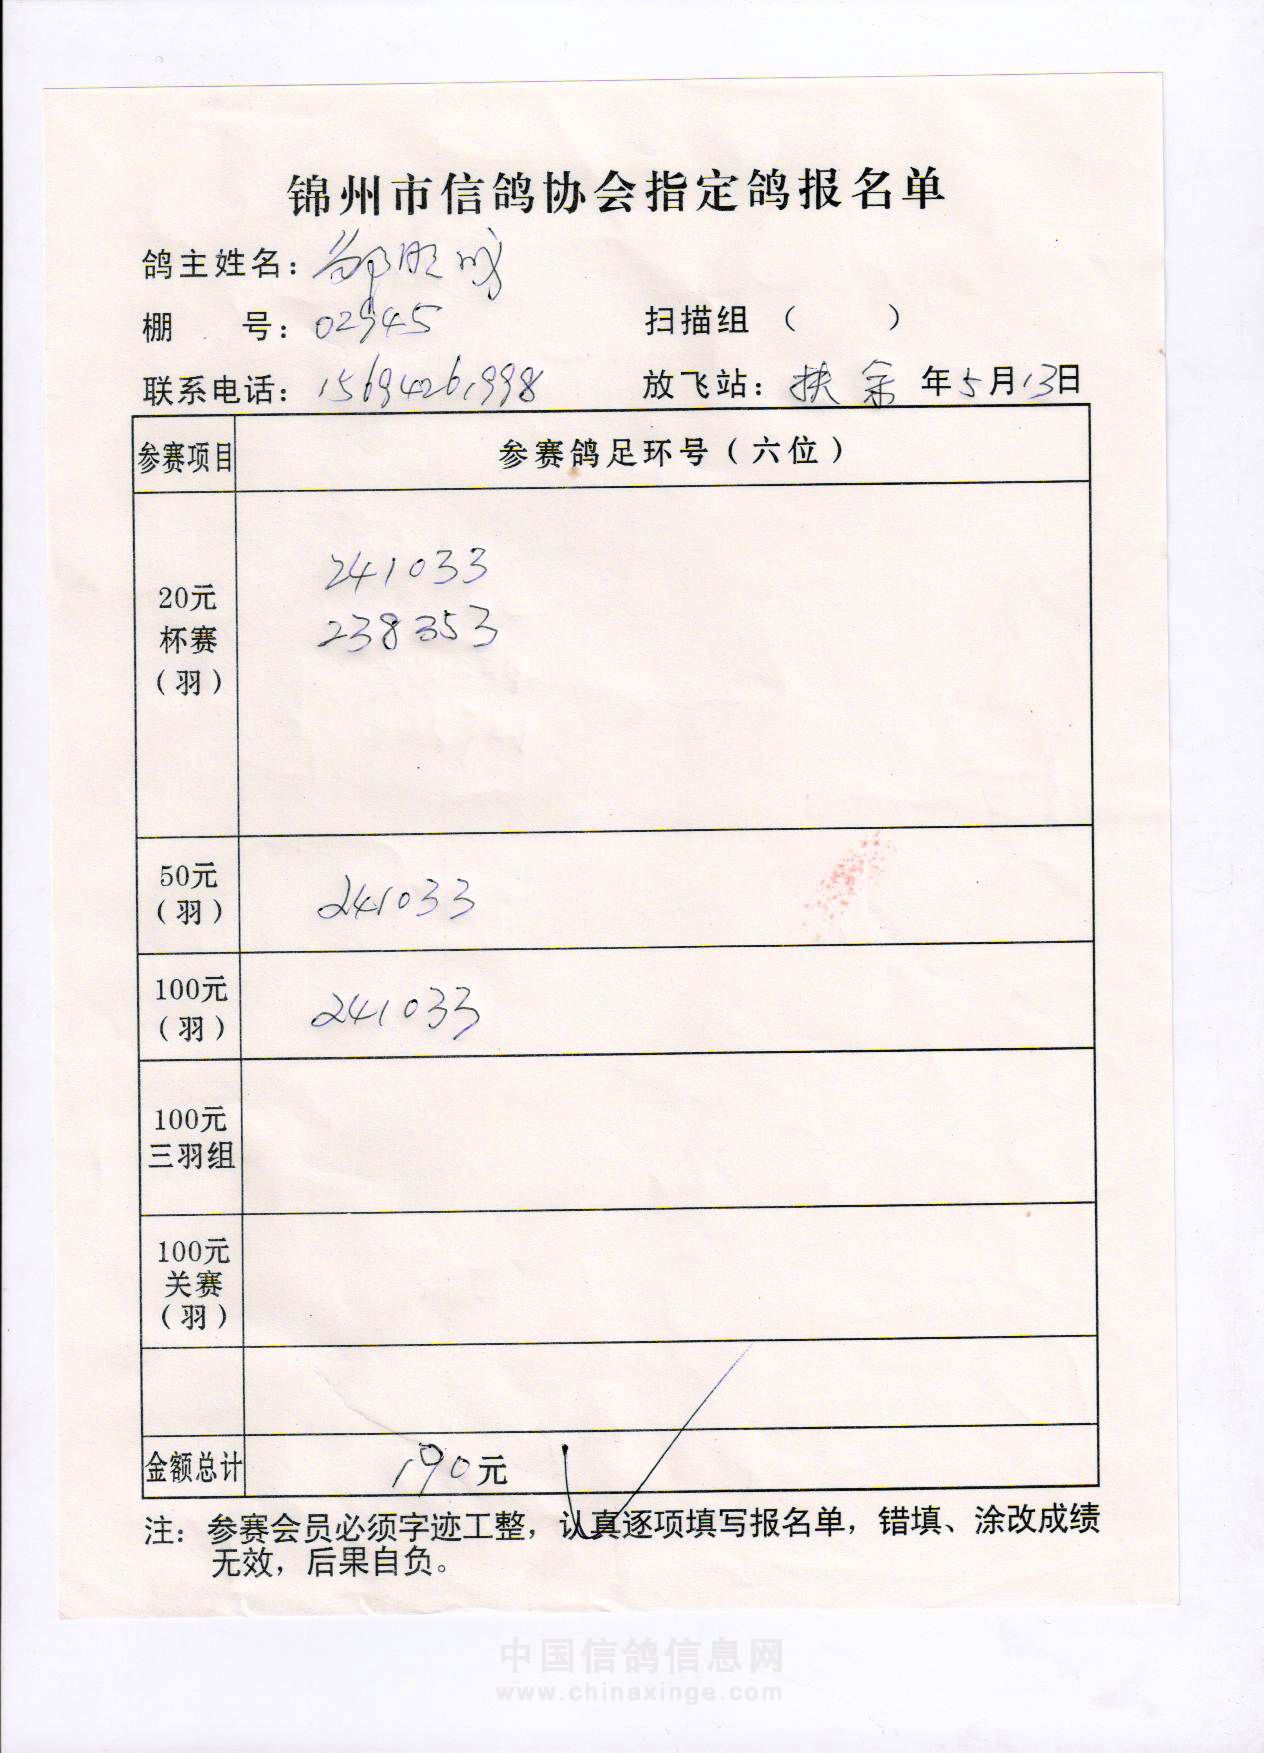 锦州市信鸽协会指定鸽报名单
鸽主姓名：
棚 号：02945 扫描组（ ）
联系电话：15694261998 放飞站：扶余 年5月13日
参赛项目 参赛鸽足环号（六位）
20元
杯赛
（羽）
241033
238353
50元
（羽）
241033
100元
（羽）
241033
100元
三羽组
100元
关赛
（羽）
金额总计 190元
注：参赛会员必须字迹工整，认真逐项填写报名单，错填、涂改成绩
无效，后果自负。
中国信鸽信息网
www.chinaxinge.com